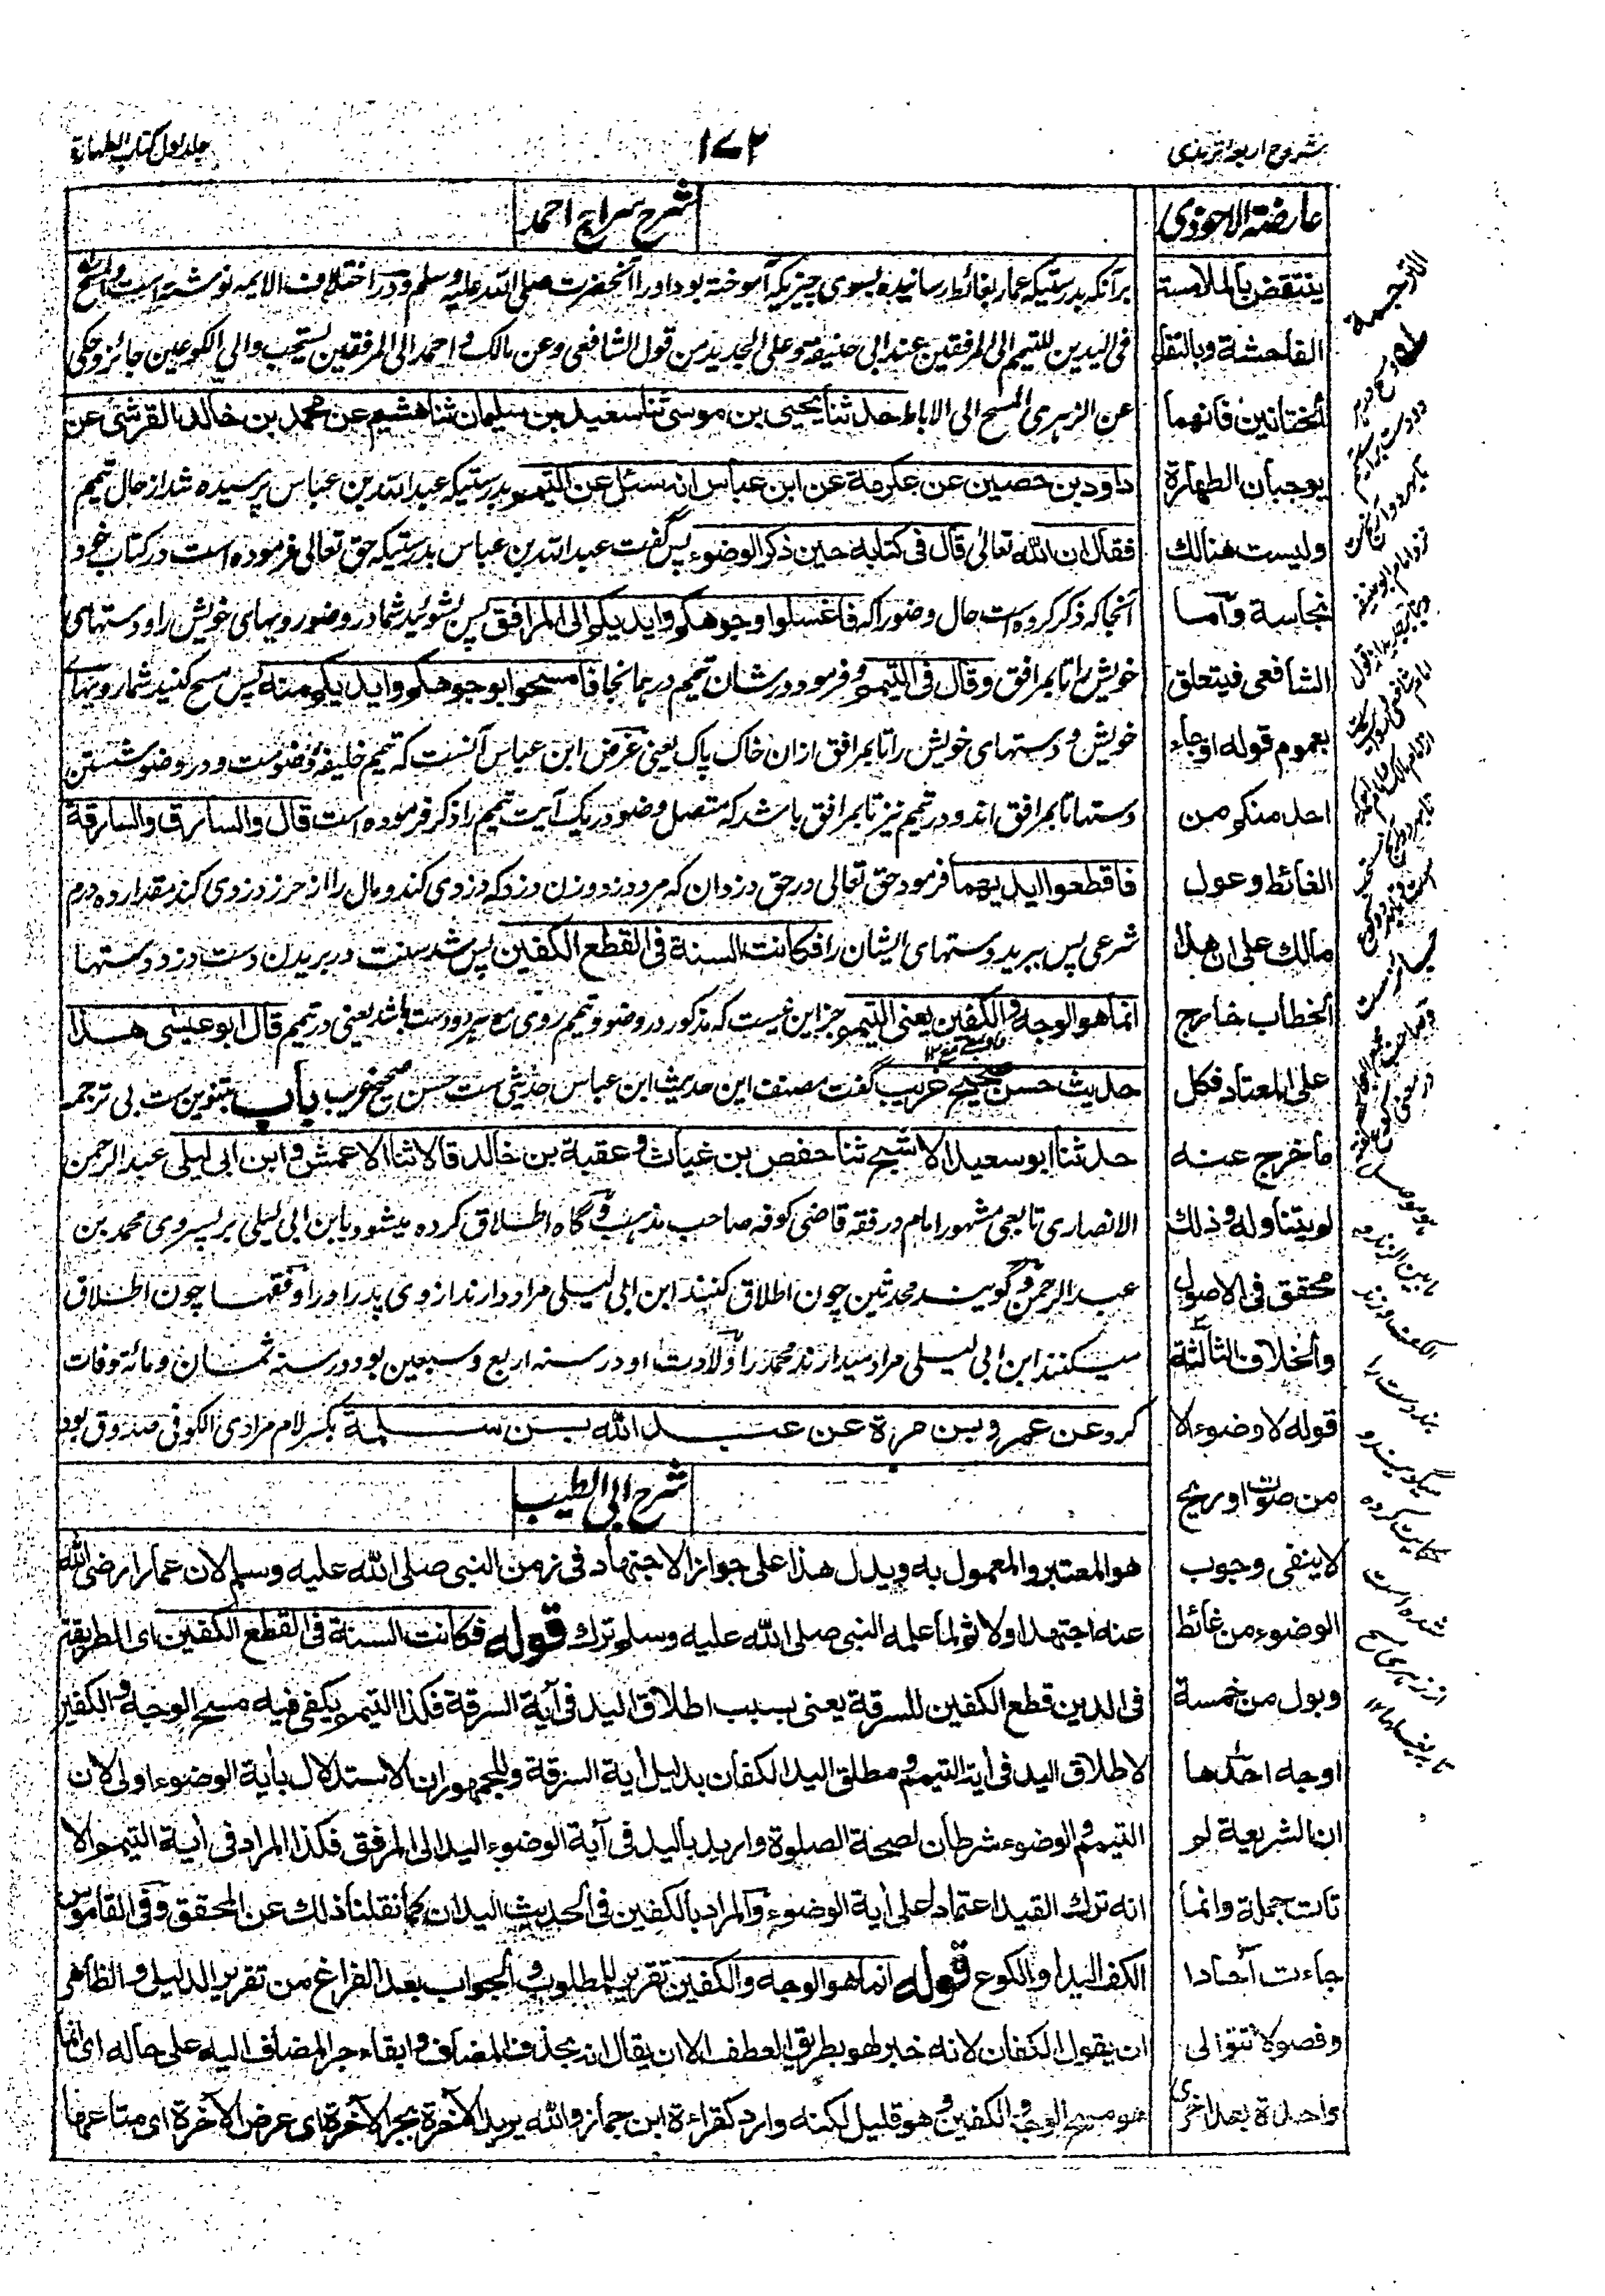 شروح اربعہ ترمذی
۱۷۲
جلد اول کتاب الطہارة
عارضة الاحوذی
ینتقض بالملامسة
الفاحشة وبالتقاء
الختانین فانهما
یوجبان الطهارة
ولیست هنالك
نجاسة واما
الشافعی فیتعلق
بعموم قوله اوجاء
احد منکم من
الغائط وعول
مالك علی ان هذا
الخطاب خارج
علی المعتاد فکل
ما خرج عنه
لم یتناوله وذلك
محقق فی الاصول
والخلاف الثالثة
قوله لا وضوء الا
من صوت او ریح
لا ینفی وجوب
الوضوء من غائط
وبول من خمسة
اوجه احدها
ان الشریعة لم
تات جملة وانما
جاءت آحادا
وفصولا تتوالی
واحدة بعد اخری
شرح سراج احمد
برآنکه بدرستیکه عمار بغائط رسانیده بسوی چیزیکه آموخته بود او را آنحضرت صلی الله علیه وسلم ودر اختلاف الایمه نوشته است والمسح
فی الیدین للتیمم الی المرفقین عند ابی حنیفة وعلی الجدید من قول الشافعی وعن مالك واحمد الی المرفقین یستحب والی الکوعین جائز وحکی
عن الزهری المسح الی الاباط حدثنا یحیی بن موسی ثنا سعید بن سلیمان ثنا هشیم عن محمد بن خالد القرشی عن
داود بن حصین عن عکرمة عن ابن عباس انه سئل عن التیمم بدرستیکه عبد الله بن عباس پرسیده شد از حال تیمم
فقال ان الله تعالی قال فی کتابه حین ذکر الوضوء پس گفت عبد الله بن عباس بدرستیکه حق تعالی فرموده است در کتاب خود
آنجا که ذکر کرده است حال وضو را که فاغسلوا وجوهکم وایدیکم الی المرافق پس بشوئید شما در وضو رویهای خویش را ودستهای
خویش را تا بمرافق وقال فی التیمم وفرمود در شان تیمم در همانجا فامسحوا بوجوهکم وایدیکم منه پس مسح کنید شما رویهای
خویش ودستهای خویش را تا بمرافق ازان خاک پاک یعنی غرض ابن عباس آنست که تیمم خلیفۂ وضوست ودر وضو شستن
دستها تا بمرافق اند ودر تیمم نیز تا بمرافق باشد که متصل وضو در یک آیت تیمم را ذکر فرموده است قال والسارق والسارقة
فاقطعوا ایدیهما فرمود حق تعالی در حق دزدان که مرد دزد وزن دزد که دزدی کند ومال را از حرز دزدی کند مقدار ده درم
شرعی پس ببرید دستهای ایشان را فکانت السنة فی القطع الکفین پس شد سنت در بریدن دست دزد دستها
انما هو الوجه والکفین یعنی التیمم جز این نیست که مذکور در وضو وتیمم روی مع هر دو دست باشد یعنی در تیمم قال ابو عیسی هذا
حدیث حسن صحیح غریب گفت مصنف این حدیث ابن عباس حدیثی ست حسن صحیح غریب باب بتنوین ست بی ترجمه
حدثنا ابو سعید الاشج ثنا حفص بن غیاث وعقبة بن خالد قالا ثنا الاعمش وابن ابی لیلی عبد الرحمن
الانصاری تابعی مشهور امام در فقه قاضی کوفه صاحب مذهب وگاه اطلاق کرده میشود یا ابن ابی لیلی بر پسر وی محمد بن
عبد الرحمن وگویند محدثین چون اطلاق کنند ابن ابی لیلی مراد دارند از وی پدر او را وفقها چون اطلاق
میکنند ابن ابی لیلی مراد میدارند محمد را ولادت او در سنه اربع وسبعین بود در سنه ثمان ومائة وفات
کرد عن عمرو بن مرة عن عبد الله بن سلمة بکسر لام مرادی الکوفی صدوق بود
شرح ابی الطیب
هو المعتبر والمعمول به ویدل هذا علی جواز الاجتهاد فی زمن النبی صلی الله علیه وسلم لان عمارا رضی الله
عنه اجتهد اولا ثم لما علمه النبی صلی الله علیه وسلم ترك قوله فکانت السنة فی القطع الکفین ای الطریقة
فی الدین قطع الکفین للسرقة یعنی بسبب اطلاق الید فی آیة السرقة فکذا التیمم یکفی فیه مسح الوجه والکفین
لاطلاق الید فی آیة التیمم ومطلق الید الکفان بدلیل آیة السرقة وللجمهور ان الاستدلال بآیة الوضوء اولی لان
التیمم والوضوء شرطان لصحة الصلوة وارید بالید فی آیة الوضوء الید الی المرفق فکذا المراد فی آیة التیمم الا
انه ترك القید اعتمادا علی آیة الوضوء والمراد بالکفین فی الحدیث الیدان کما نقلنا ذلك عن المحقق وفی القاموس
الکف الید او الکوع قوله انما هو الوجه والکفین تقریر للمطلوب والجواب بعد الفراغ من تقریر الدلیل والظاهر
ان یقول الکفان لانه خبر لهو بطریق العطف الا ان یقال انه بحذف المضاف وابقاء جر المضاف الیه علی حاله ای انما
هو مسح الوجه والکفین وهو قلیل لکنه وارد کقراءة ابن جماز والله یرید الآخرة بجر الآخرة ای عرض الآخرة ای متاعها
الترجمة